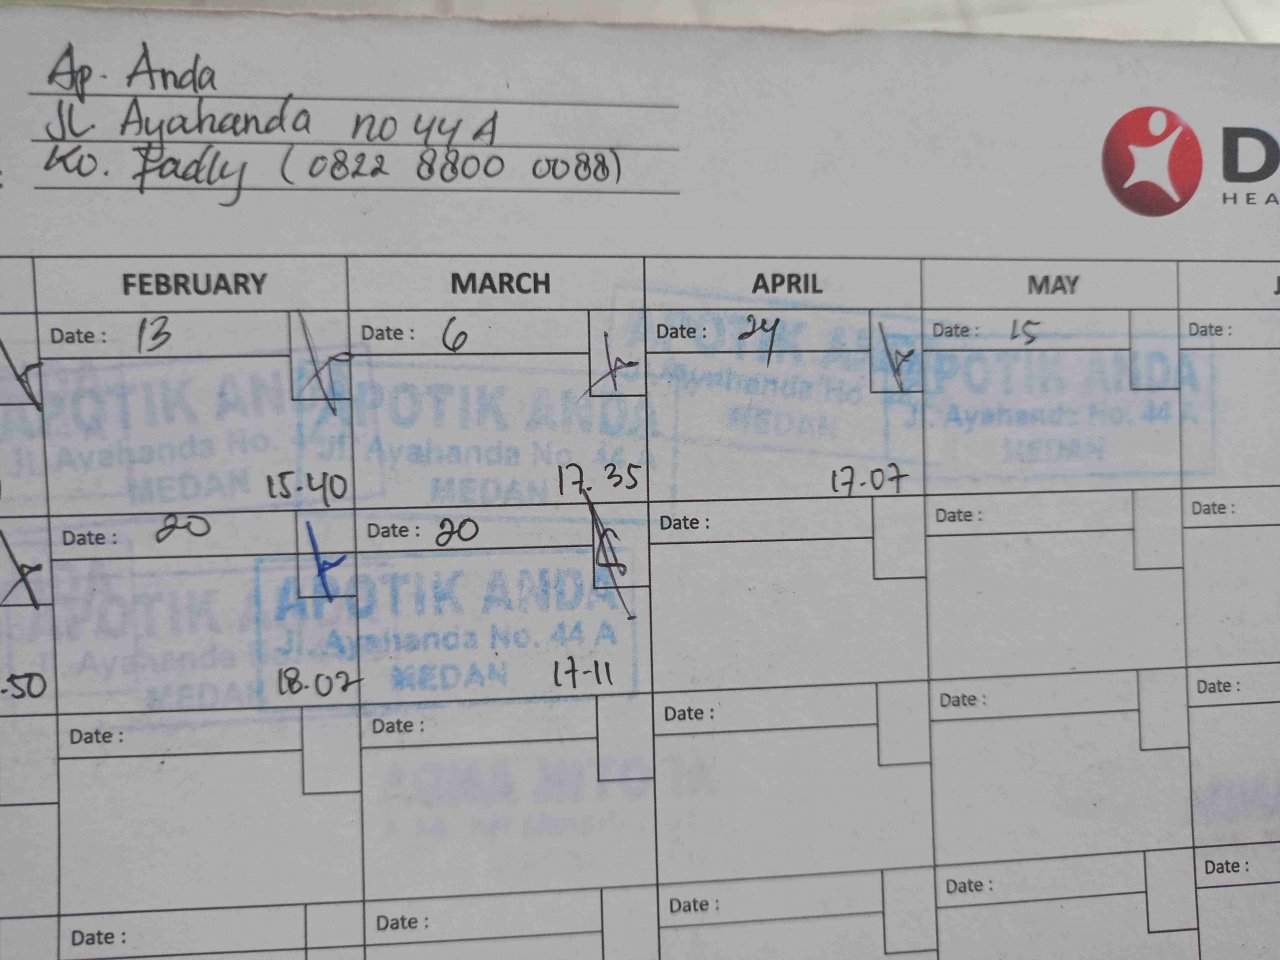 Ap. Anda
JL. Ayahanda no 44 A
Ko. Fadly (0822 8800 0088)
D
HEA
FEBRUARY MARCH APRIL MAY J
Date : 13 Date : 6 Date : 24 Date : 15 Date :
APOTIK ANDA APOTIK ANDA APOTIK ANDA APOTIK ANDA
Jl. Ayahanda No. 44 Jl. Ayahanda No. 44 A Jl. Ayahanda No. 44 A Jl. Ayahanda No. 44 A
MEDAN MEDAN MEDAN MEDAN
15.40 17.35 17.07
Date : 20 Date : 20 Date : Date : Date :
APOTIK A APOTIK ANDA
Jl. Ayahanda Jl. Ayahanda No. 44 A
MEDAN MEDAN
.50 18.02 17-11
Date : Date : Date : Date : Date :
Date : Date : Date : Date : Date :